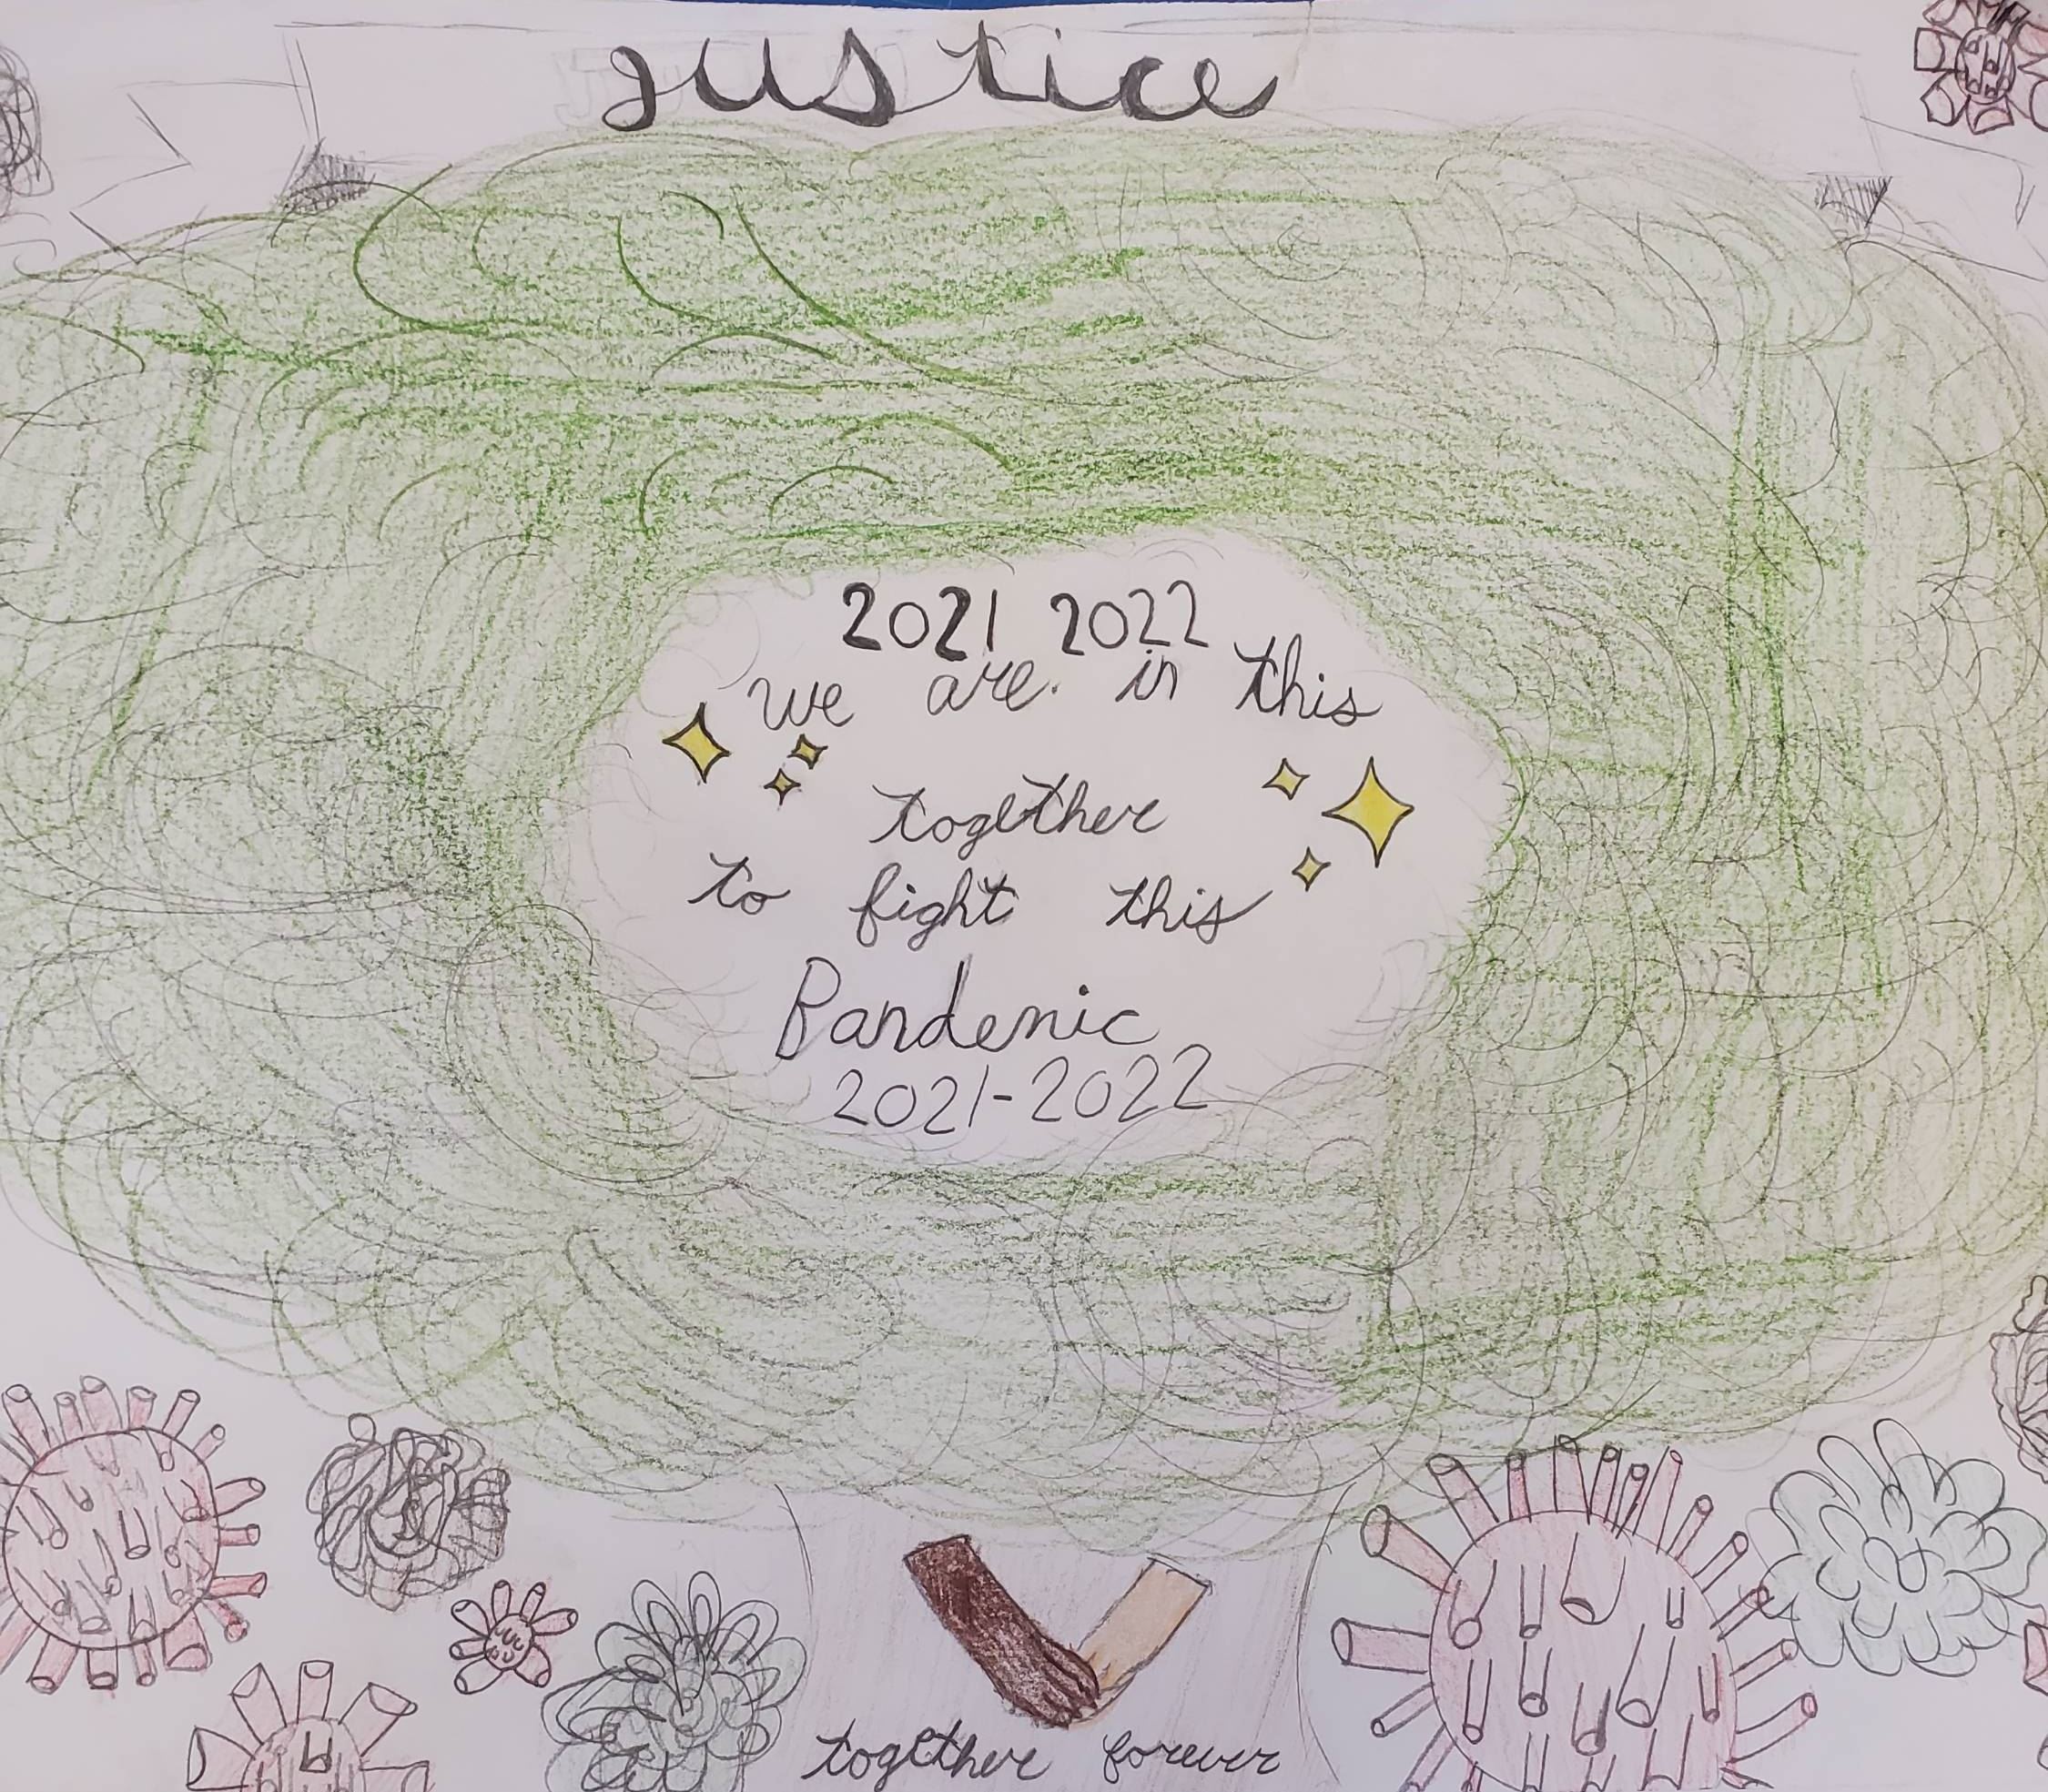 Justice
2021 2022
we are in this
together
to fight this
Pandemic
2021-2022
together forever